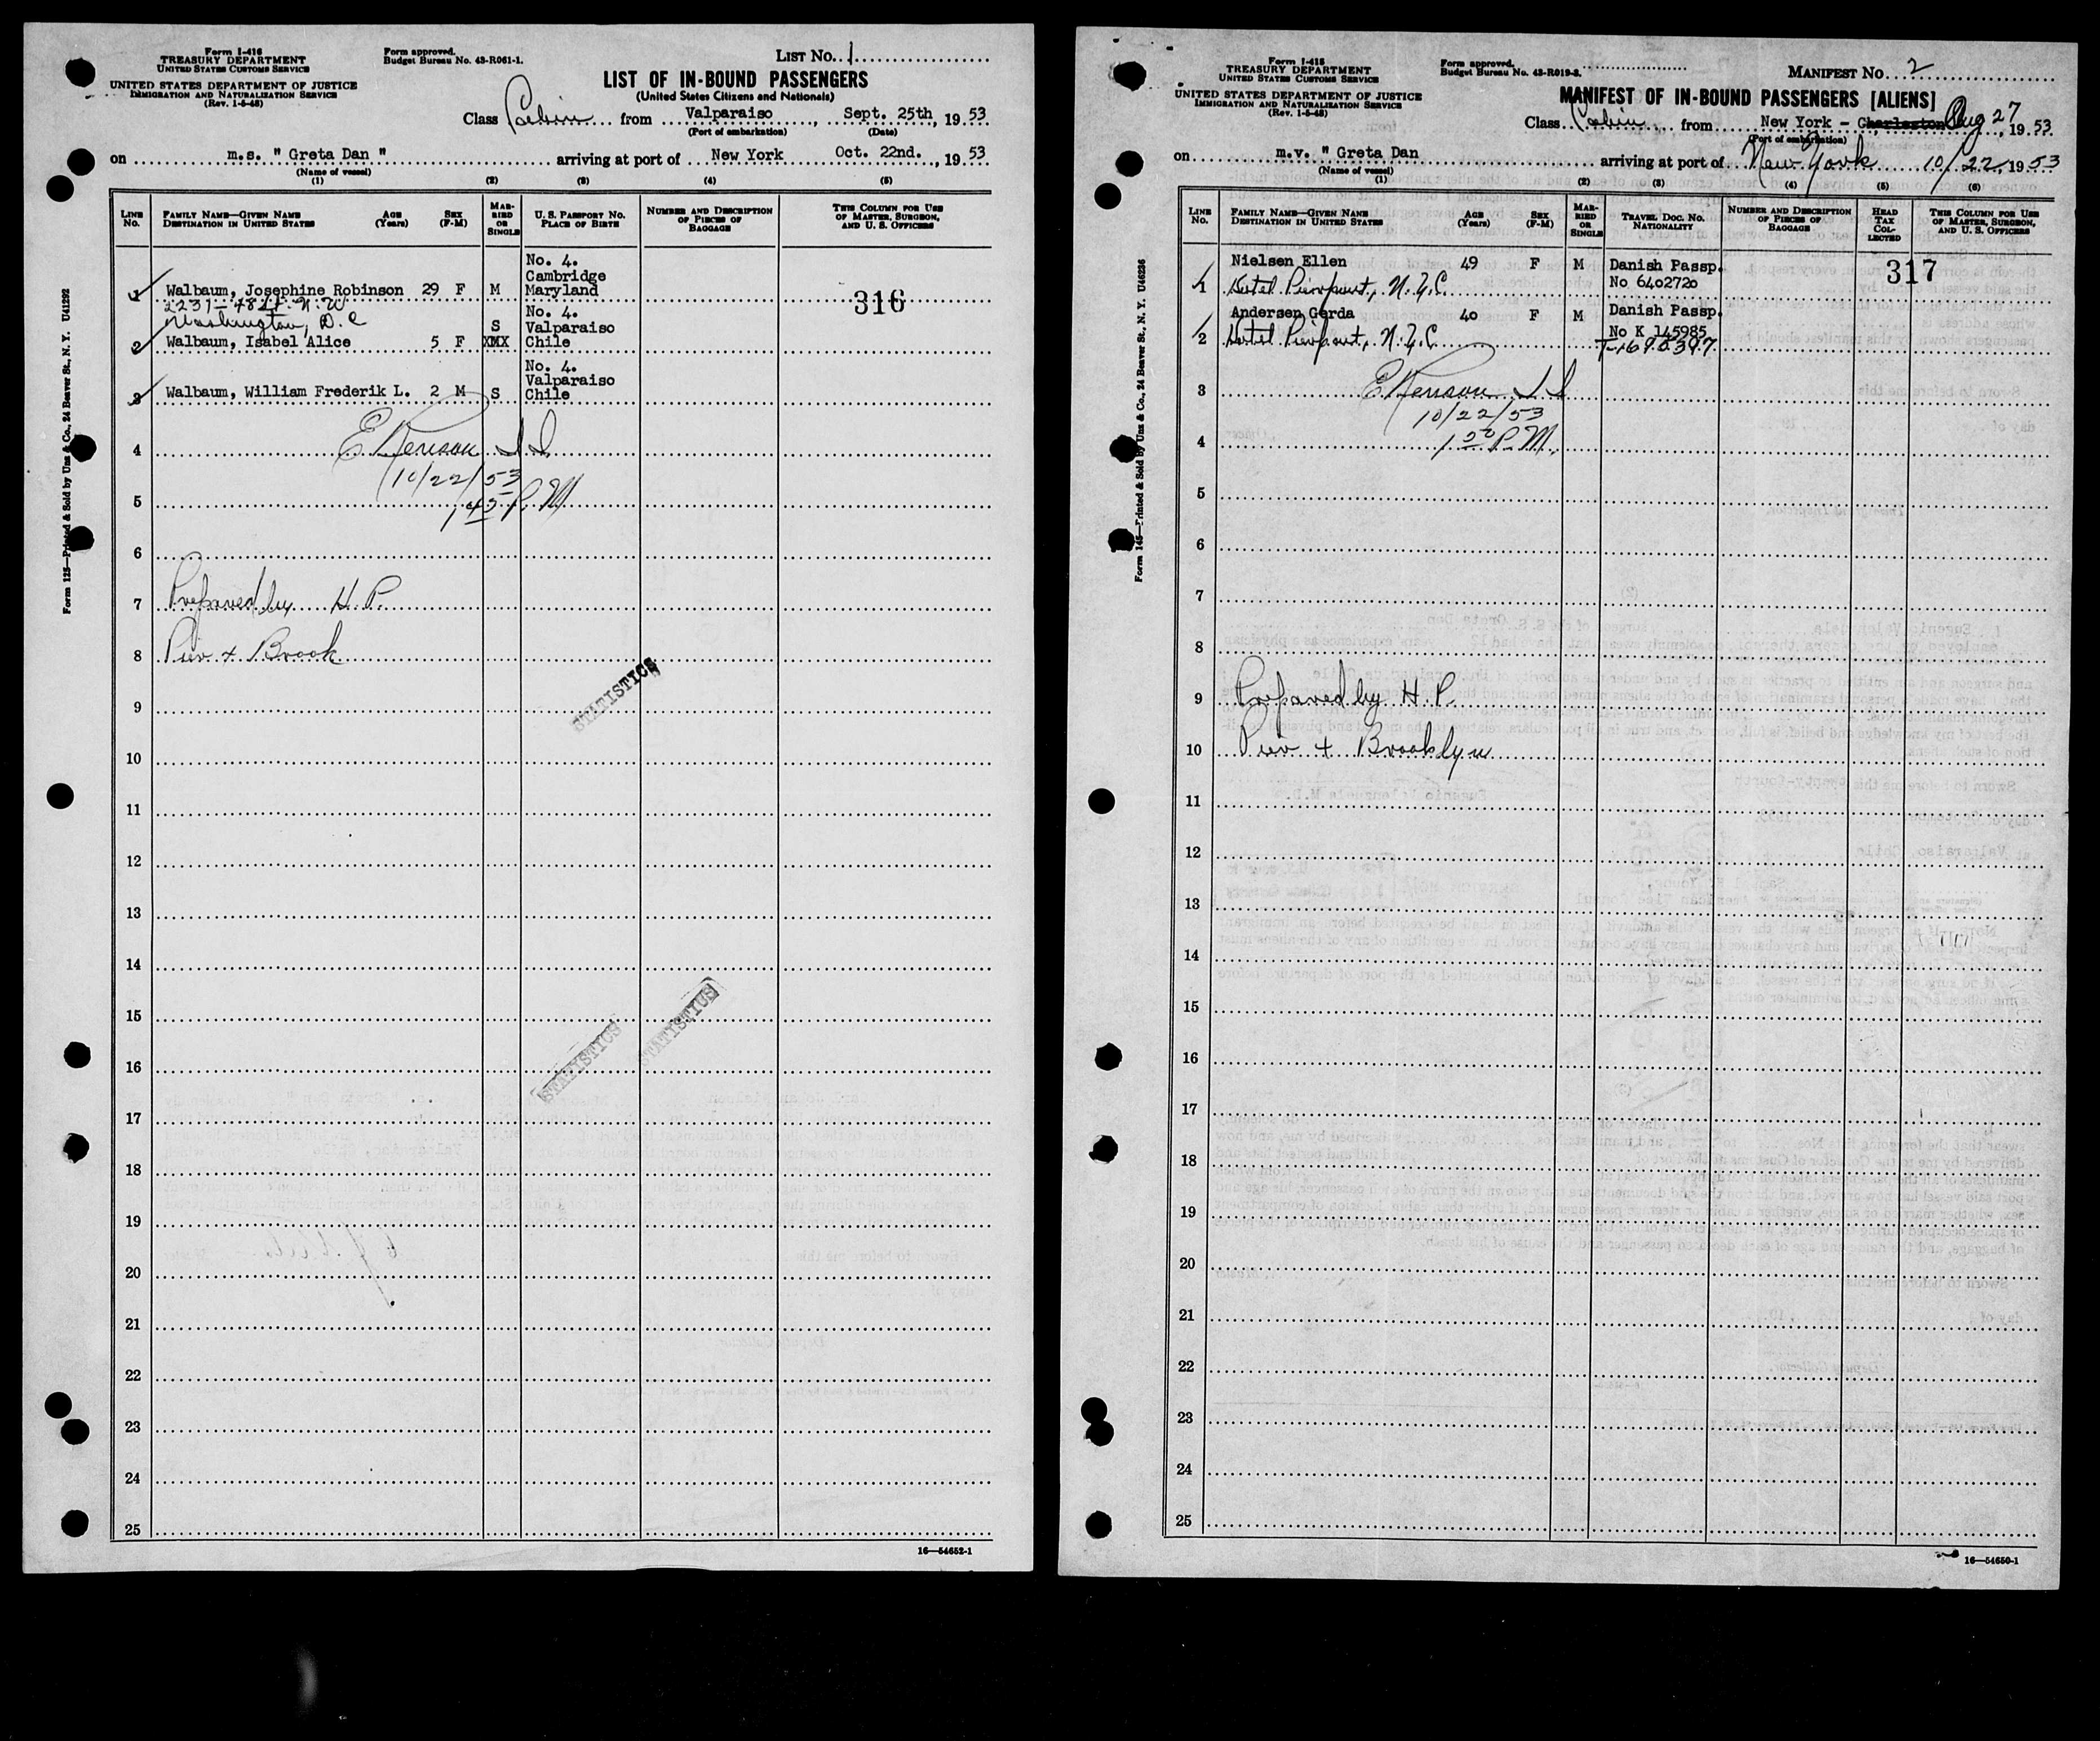 Form I-416
TREASURY DEPARTMENT
UNITED STATES CUSTOMS SERVICE
UNITED STATES DEPARTMENT OF JUSTICE
IMMIGRATION AND NATURALIZATION SERVICE
(Rev. 1-5-48)
Form approved.
Budget Bureau No. 43-R061-1.
LIST No. 1
LIST OF IN-BOUND PASSENGERS
(United States Citizens and Nationals)
Class Cabin from Valparaiso, Sept. 25th, 1953
(Port of embarkation) (Date)
on m.s. " Greta Dan " arriving at port of New York Oct. 22nd., 1953
(Name of vessel)
(1) (2) (3) (4) (5)
LINE No. FAMILY NAME—GIVEN NAME DESTINATION IN UNITED STATES AGE (Years) SEX (F-M) MARRIED OR SINGLE U. S. PASSPORT No. PLACE OF BIRTH NUMBER AND DESCRIPTION OF PIECES OF BAGGAGE THIS COLUMN FOR USE OF MASTER, SURGEON, AND U. S. OFFICERS
No. 4.
Cambridge
1 Walbaum, Josephine Robinson 29 F M Maryland 316
2231-48 St. N.W
Washington, D.C
No. 4.
S Valparaiso
2 Walbaum, Isabel Alice 5 F XMX Chile
No. 4.
Valparaiso
3 Walbaum, William Frederik L. 2 M S Chile
4 E Kenson I I
10/22/53
5 1 45 P. M
6
7 Prepared by H. P.
8 Pier + Brook
STATISTICS
9
10
11
12
13
14
STATISTICS
15
STATISTICS
16
17
18
19
20
21
22
23
24
25
16—54652-1
Form 125—Printed & Sold by Unz & Co., 24 Beaver St., N. Y. U41292
Form I-415
TREASURY DEPARTMENT
UNITED STATES CUSTOMS SERVICE
UNITED STATES DEPARTMENT OF JUSTICE
IMMIGRATION AND NATURALIZATION SERVICE
(Rev. 1-5-48)
Form approved.
Budget Bureau No. 43-R019-2.
MANIFEST No. 2
MANIFEST OF IN-BOUND PASSENGERS [ALIENS]
Class Cabin from New York - Charleston Aug 27, 1953
(Port of embarkation)
on m.v. " Greta Dan arriving at port of New York 10/22, 1953
(Name of vessel)
(1) (2) (3) (4) (5) (6)
LINE No. FAMILY NAME—GIVEN NAME DESTINATION IN UNITED STATES AGE (Years) SEX (F-M) MARRIED OR SINGLE TRAVEL DOC. NO. NATIONALITY NUMBER AND DESCRIPTION OF PIECES OF BAGGAGE HEAD TAX COLLECTED THIS COLUMN FOR USE OF MASTER, SURGEON, AND U. S. OFFICERS
Nielsen Ellen 49 F M Danish Passp. 317
1 Hotel Pierpont, N.Y.C. No 6402720
Andersen Gerda 40 F M Danish Passp.
2 Hotel Pierpont, N.Y.C No K 145985
T-1695397
3 E Kenson I I
10/22/53
4 1 50 P. M.
5
6
7
8
9 Prepared by H. P.
10 Pier + Brooklyn
11
12
13
14
15
16
17
18
19
20
21
22
23
24
25
16—54650-1
Form 145—Printed & Sold by Unz & Co., 24 Beaver St., N. Y. U46236